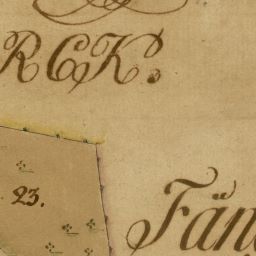 RCK.
23.
Fän